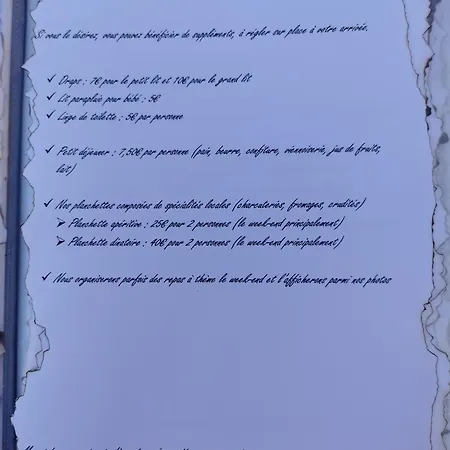 Si vous le désirez, vous pouvez bénéficier de suppléments, à régler sur place à votre arrivée.
✓ Draps : 7€ pour le petit lit et 10€ pour le grand lit
✓ Lit parapluie pour bébé : 5€
✓ Linge de toilette : 5€ par personne
✓ Petit déjeuner : 7,50€ par personne (pain, beurre, confiture, viennoiserie, jus de fruits,
lait)
✓ Nos planchettes composées de spécialités locales (charcuteries, fromages, crudités)
➢ Planchette apéritive : 25€ pour 2 personnes (le week-end principalement)
➢ Planchette dinatoire : 40€ pour 2 personnes (le week-end principalement)
✓ Nous organiserons parfois des repas à thème le week-end et l'afficherons parmi nos photos